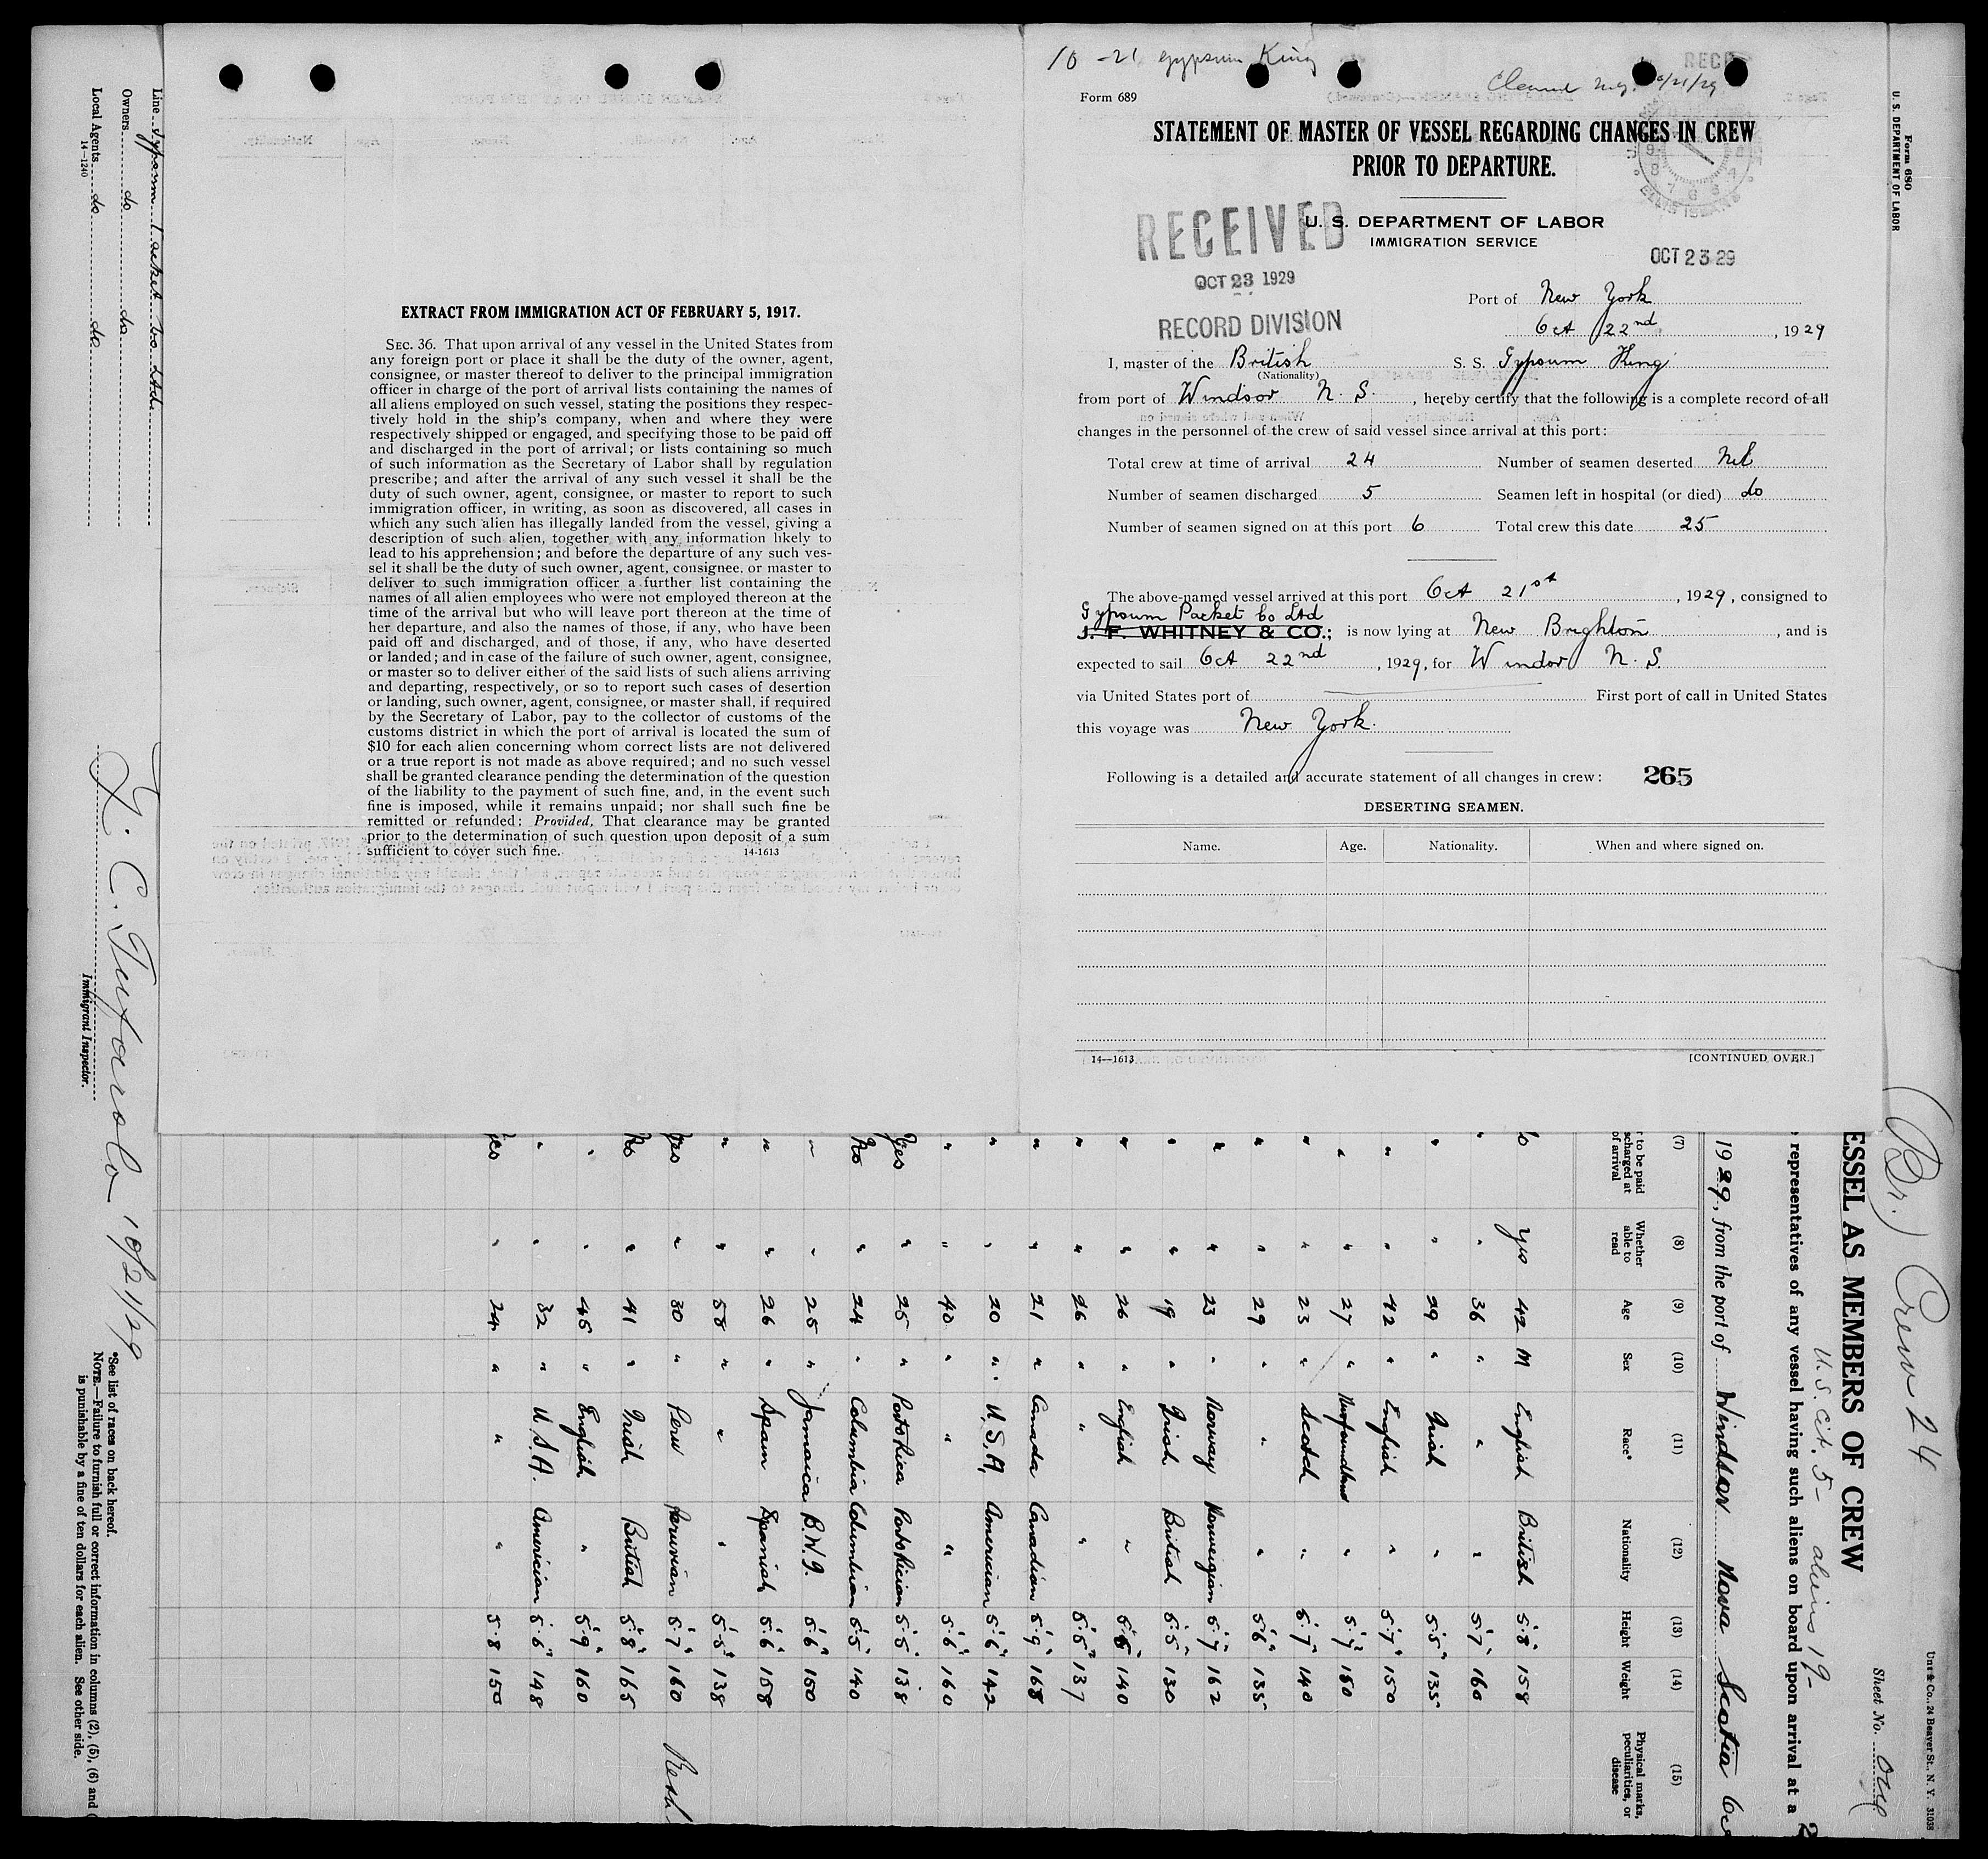 10-21 Gypsum King
Cleared N.Y. 10/21/29
Form 689
STATEMENT OF MASTER OF VESSEL REGARDING CHANGES IN CREW
PRIOR TO DEPARTURE.
ELLIS ISLAND
U. S. DEPARTMENT OF LABOR
IMMIGRATION SERVICE
RECEIVED
OCT 23 1929
RECORD DIVISION
OCT 23 29
Port of New York
Oct 22nd, 1929
I, master of the British S. S. Gypsum King
(Nationality)
from port of Windsor N. S., hereby certify that the following is a complete record of all
changes in the personnel of the crew of said vessel since arrival at this port:
Total crew at time of arrival 24 Number of seamen deserted Nil
Number of seamen discharged 5 Seamen left in hospital (or died) do
Number of seamen signed on at this port 6 Total crew this date 25
The above-named vessel arrived at this port Oct 21st, 1929, consigned to
Gypsum Packet Co Ltd
J. F. WHITNEY & CO.; is now lying at New Brighton, and is
expected to sail Oct 22nd, 1929, for Windor N. S.
via United States port of First port of call in United States
this voyage was New York.
Following is a detailed and accurate statement of all changes in crew: 265
DESERTING SEAMEN.
Name. Age. Nationality. When and where signed on.
14—1613 [CONTINUED OVER.]
EXTRACT FROM IMMIGRATION ACT OF FEBRUARY 5, 1917.
SEC. 36. That upon arrival of any vessel in the United States from
any foreign port or place it shall be the duty of the owner, agent,
consignee, or master thereof to deliver to the principal immigration
officer in charge of the port of arrival lists containing the names of
all aliens employed on such vessel, stating the positions they respec-
tively hold in the ship's company, when and where they were
respectively shipped or engaged, and specifying those to be paid off
and discharged in the port of arrival; or lists containing so much
of such information as the Secretary of Labor shall by regulation
prescribe; and after the arrival of any such vessel it shall be the
duty of such owner, agent, consignee, or master to report to such
immigration officer, in writing, as soon as discovered, all cases in
which any such alien has illegally landed from the vessel, giving a
description of such alien, together with any information likely to
lead to his apprehension; and before the departure of any such ves-
sel it shall be the duty of such owner, agent, consignee, or master to
deliver to such immigration officer a further list containing the
names of all alien employees who were not employed thereon at the
time of the arrival but who will leave port thereon at the time of
her departure, and also the names of those, if any, who have been
paid off and discharged, and of those, if any, who have deserted
or landed; and in case of the failure of such owner, agent, consignee,
or master so to deliver either of the said lists of such aliens arriving
and departing, respectively, or so to report such cases of desertion
or landing, such owner, agent, consignee, or master shall, if required
by the Secretary of Labor, pay to the collector of customs of the
customs district in which the port of arrival is located the sum of
$10 for each alien concerning whom correct lists are not delivered
or a true report is not made as above required; and no such vessel
shall be granted clearance pending the determination of the question
of the liability to the payment of such fine, and, in the event such
fine is imposed, while it remains unpaid; nor shall such fine be
remitted or refunded: Provided, That clearance may be granted
prior to the determination of such question upon deposit of a sum
sufficient to cover such fine. 14-1613
Form 680
U. S. DEPARTMENT OF LABOR
(Br.) Crew 24
Unz & Co., 24 Beaver St., N. Y. 31038
Sheet No. One
ESSEL AS MEMBERS OF CREW
U. S. Cit. 5- aliens 19-
representatives of any vessel having such aliens on board upon arrival at a
1929, from the port of Windsor Nova Scotia
(7) (8) (9) (10) (11) (12) (13) (14) (15)
r to be paid
scharged at
of arrival
Whether
able to
read
Age
Sex
Race*
Nationality
Height
Weight
Physical marks,
peculiarities, or
disease
yes 42 M English British 5'8" 158
" " 36 " " " 5'7" 160
" " 29 " Irish " 5'5" 135
" " 42 " English " 5'7" 150
" " 27 " Newfoundland " 5'7" 180
" " 23 " Scotch " 5'7" 140
" " 29 " " " 5'6" 135
" " 23 " Norway Norweigian 5'7" 162
" " 19 " Irish British 5'5" 130
" " 26 " English " 5'6" 140
" " 26 " " " 5'5" 137
" " 21 " Canada Canadian 5'9" 168
" " 20 " U.S.A. American 5'6" 142
" " 40 " " " 5'6" 160
Yes " 25 " Porto Rica Porto Rician 5'5" 138
No " 24 " Columbia Columbian 5'5" 140
" " 25 " Jamaica B.W.I. 5'6" 150
" " 26 " Spain Spanish 5'6" 158
" " 58 " " " 5'5" 138
Yes " 30 " Peru Peruvian 5'7" 160
No " 41 " Irish British 5'8" 165
" " 45 " English " 5'9" 160
" " 32 " U.S.A. American 5'6" 148
Yes " 24 " " " 5'8 150
Line Gypsum Packet Co Ltd
Owners do do
Local Agents do do
14-1240
10/21/29
Immigrant Inspector.
*See list of races on back hereof.
NOTE.—Failure to furnish full or correct information in columns (2), (5), (6) and (
is punishable by a fine of ten dollars for each alien. See other side.